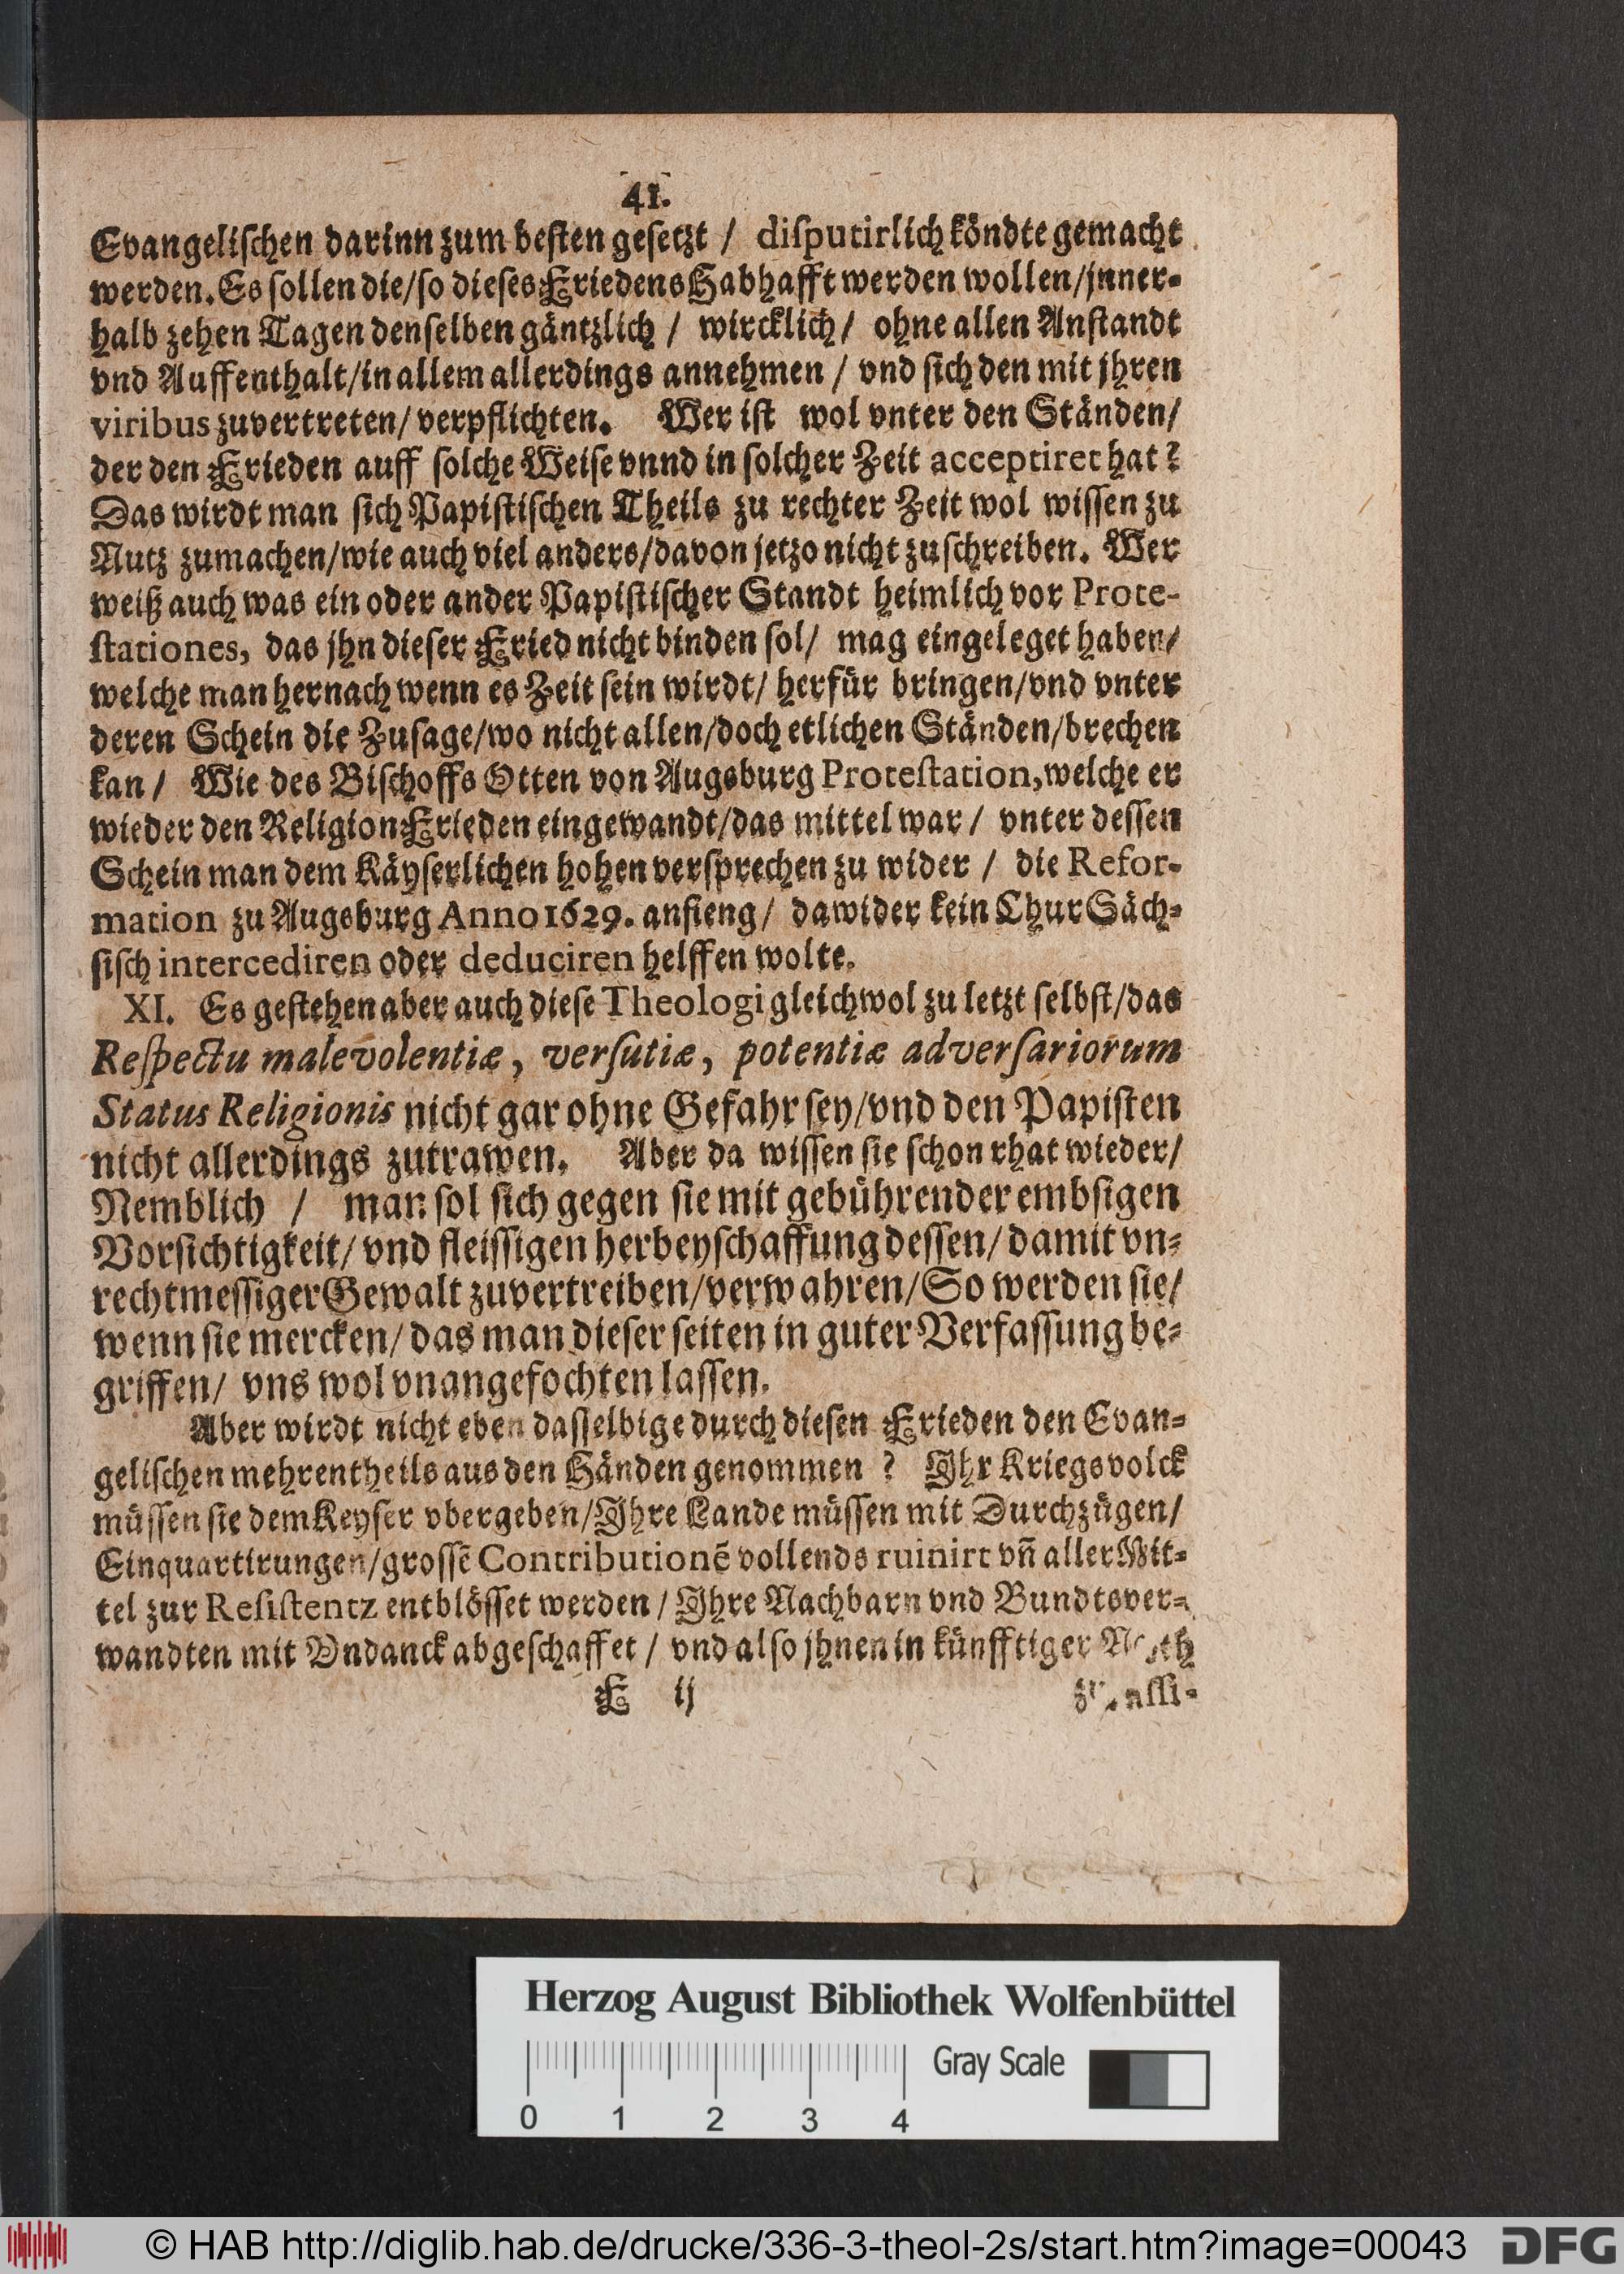 41.
Evangelischen darinn zum besten gesetzt / disputirlich köndte gemacht
werden. Es sollen die/so dieses Friedens Habhafft werden wollen/jnner-
halb zehen Tagen denselben gäntzlich / wircklich / ohne allen Anstandt
vnd Auffenthalt/in allem allerdings annehmen / vnd sich den mit jhren
viribus zuvertreten/verpflichten. Wer ist wol vnter den Ständen/
der den Frieden auff solche Weise vnnd in solcher Zeit acceptiret hat?
Das wirdt man sich Papistischen Theils zu rechter Zeit wol wissen zu
Nutz zumachen/wie auch viel anders/davon jetzo nicht zuschreiben. Wer
weiß auch was ein oder ander Papistischer Standt heimlich vor Prote-
stationes, das jhn dieser Fried nicht binden sol/ mag eingeleget haben/
welche man hernach wenn es Zeit sein wirdt/ herfür bringen/vnd vnter
deren Schein die Zusage/wo nicht allen/doch etlichen Ständen/brechen
kan / Wie des Bischoffs Otten von Augsburg Protestation, welche er
wieder den Religion Frieden eingewandt/das mittel war / vnter dessen
Schein man dem Käyserlichen hohen versprechen zu wider / die Refor-
mation zu Augsburg Anno 1629. anfieng / dawider kein Chur Säch-
sisch intercediren oder deduciren helffen wolte.
XI. Es gestehen aber auch diese Theologi gleichwol zu letzt selbst/das
Respectu malevolentiæ, versutiæ, potentiæ adversariorum
Status Religionis nicht gar ohne Gefahr sey/vnd den Papisten
nicht allerdings zutrawen. Aber da wissen sie schon rhat wieder/
Nemblich / man sol sich gegen sie mit gebührender embsigen
Vorsichtigkeit/vnd fleissigen herbeyschaffung dessen/damit vn-
rechtmessiger Gewalt zuvertreiben/verwahren/So werden sie/
wenn sie mercken/das man dieser seiten in guter Verfassung be-
griffen/ vns wol vnangefochten lassen.
Aber wirdt nicht eben dasselbige durch diesen Frieden den Evan-
gelischen mehrentheils aus den Händen genommen ? Ihr Kriegsvolck
müssen sie dem Keyser vbergeben/Ihre Lande müssen mit Durchzügen/
Einquartirungen/grossē Contributionē vollends ruinirt vñ aller Mit-
tel zur Resistentz entblösset werden / Ihre Nachbarn vnd Bundtsver-
wandten mit Vndanck abgeschaffet / vnd also jhnen in künfftiger
F ij
Herzog August Bibliothek Wolfenbüttel
Gray Scale
0 1 2 3 4
© HAB http://diglib.hab.de/drucke/336-3-theol-2s/start.htm?image=00043
DFG